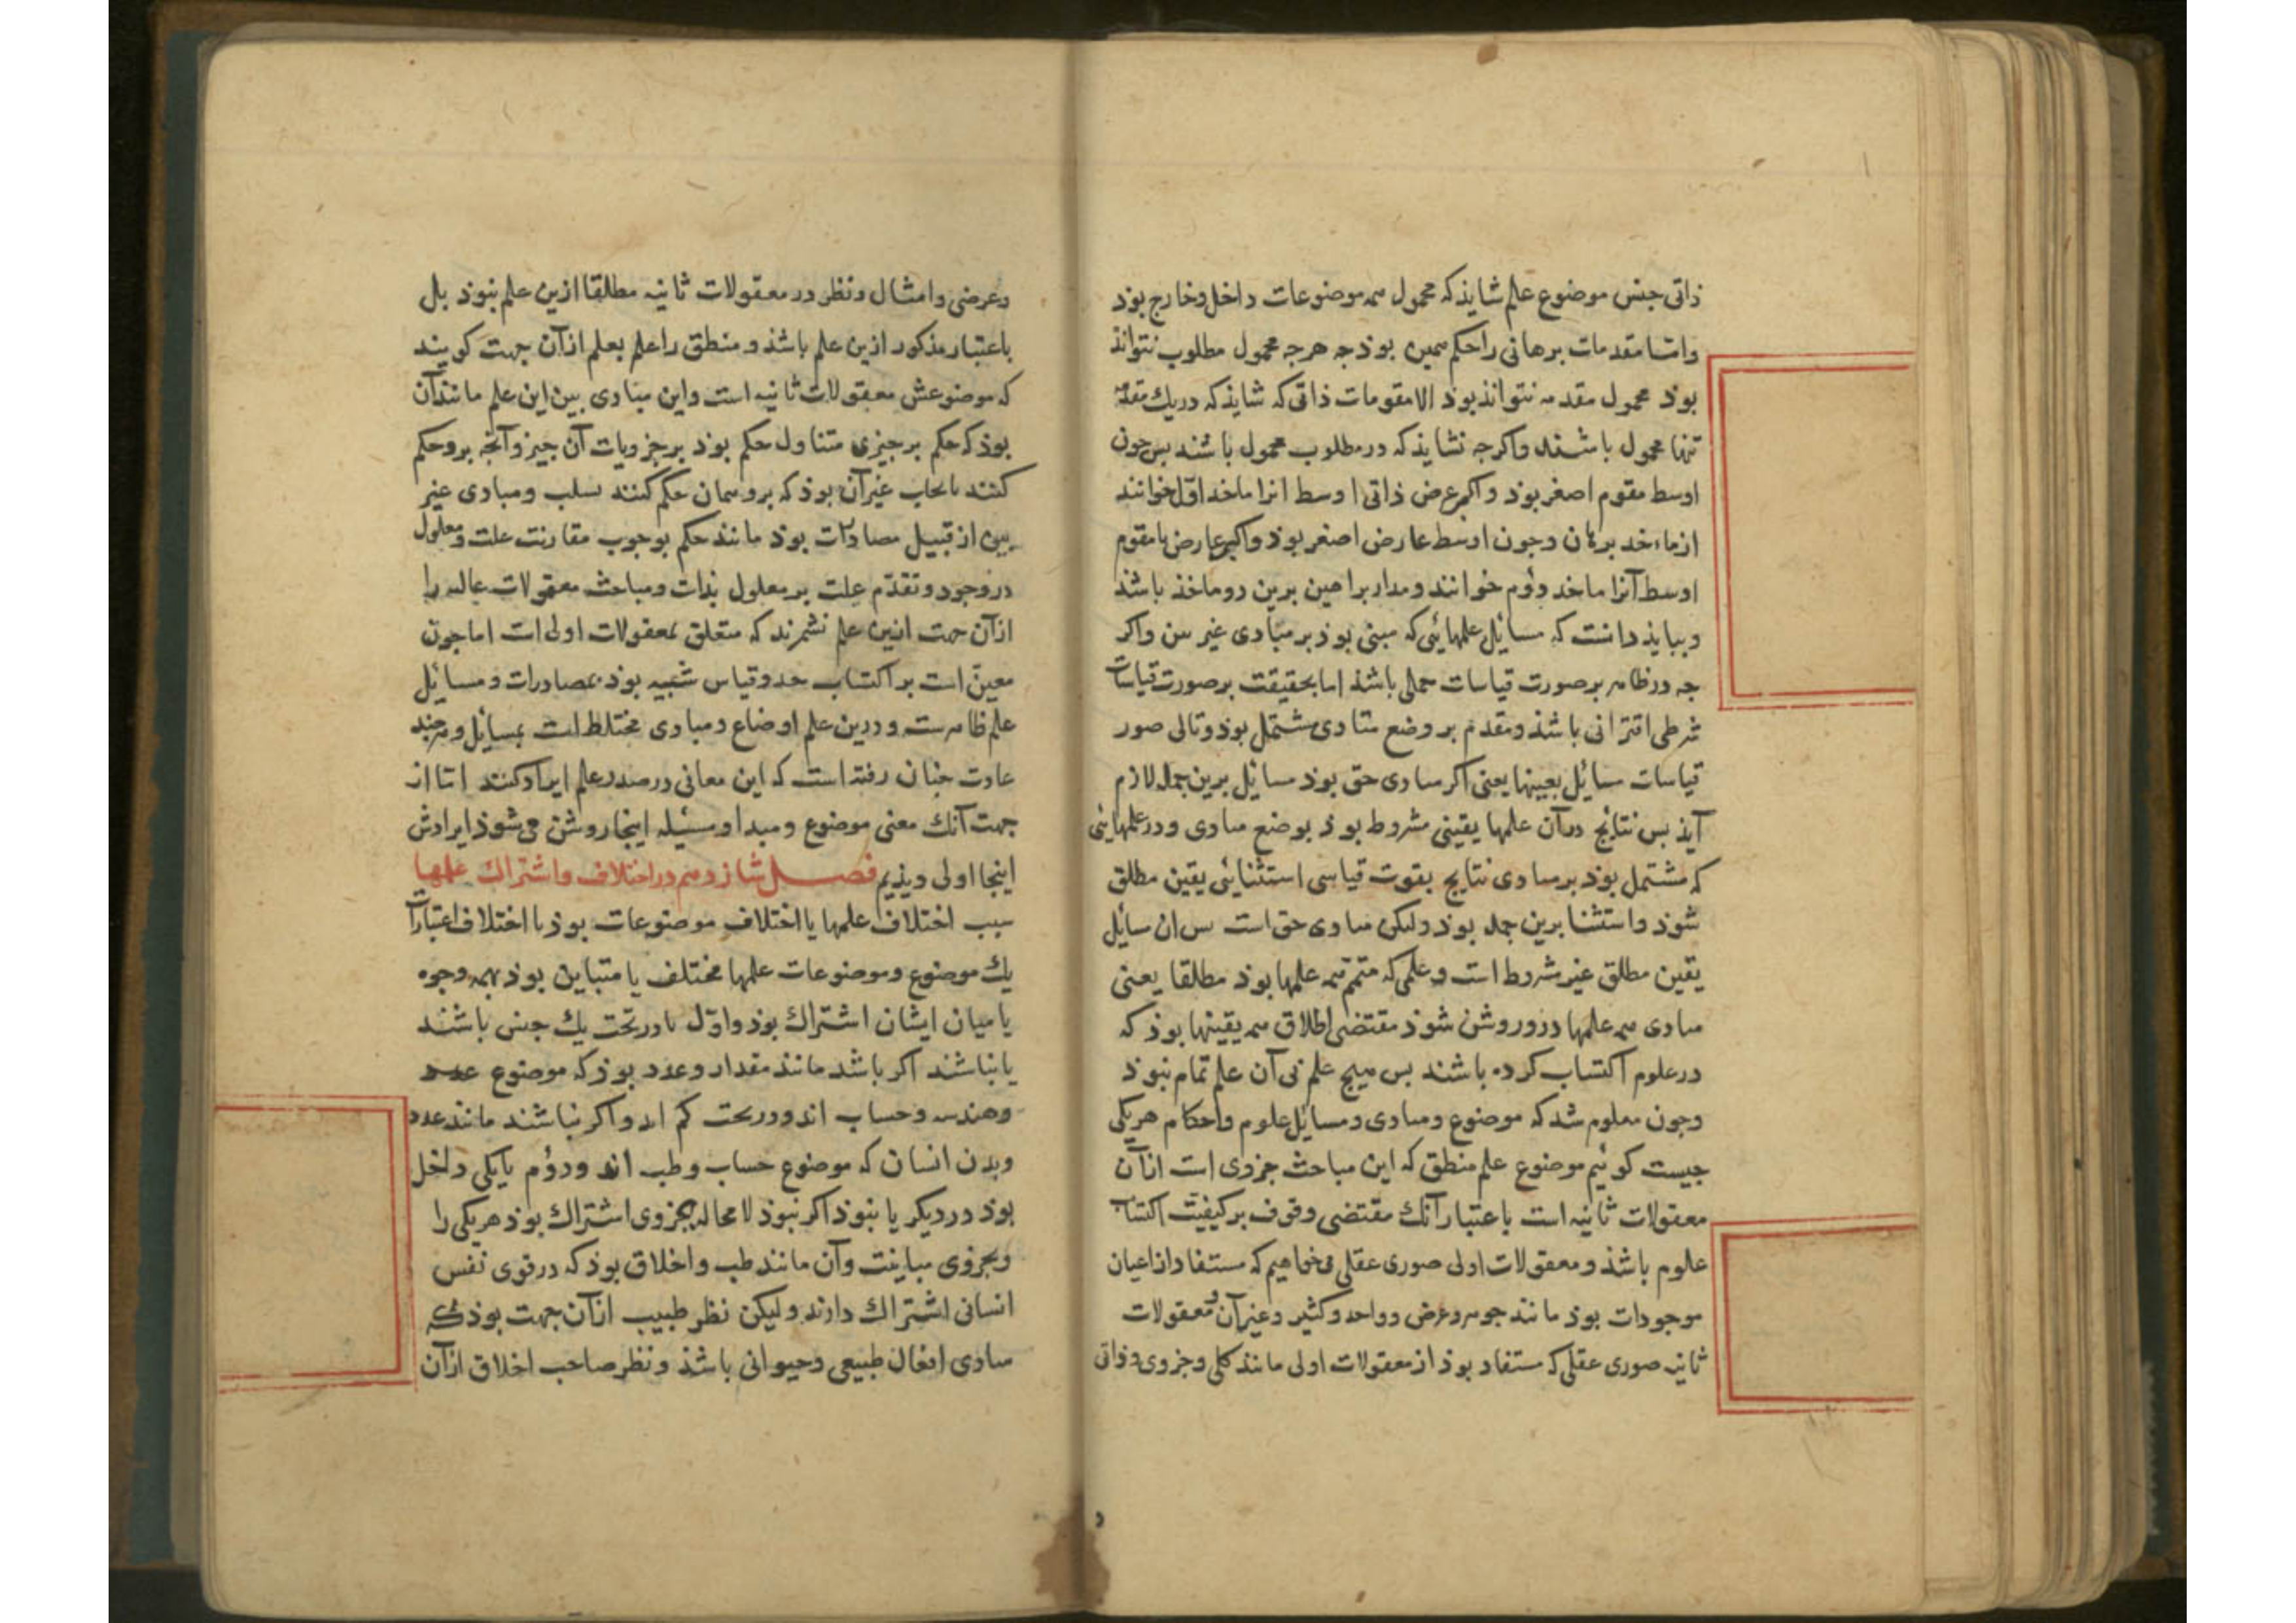 ذاتی جنس موضوع علم شایذ که محمول همه موضوعات داخل وخارج بوذ
وامّا مقدمات برهانی را حکم همین بوذ جه هرجه محمول مطلوب نتوانذ
بوذ محمول مقدمه نتوانذ بوذ الا مقومات ذاتی که شایذ که در یك مقدمّه
تنها محمول باشند واکرجه نشایذ که در مطلوب محمول باشند بس جون
اوسط مقوم اصغر بوذ واکبر عرض ذاتی اوسط انرا ماخد اوّل خوانند
از ماءخد برهان وجون اوسط عارض اصغر بوذ واکبر عارض یا مقوم
اوسط آنرا ماخد دوُم خوانند ومدار براهین برین دو ماخذ باشذ
وببایذ دانست که مسائل علمهائی که مبنی بوذ بر مبادی غیر بین واکر
جه در ظاهر بر صورت قیاسات حملی باشذ اما بحقیقت بر صورت قیاسات
شرطی اقترانی باشذ ومقدم بر وضع مبادی مشتمل بوذ وتالی صور
قیاسات مسائل بعینها یعنی اکر مبادی حق بوذ مسائل برین جمله لازم
آیذ بس نتائج در آن علمها یقینی مشروط بوذ بوضع مبادی ودر علمهایئی
که مشتمل بوذ بر مبادی نتایج بقوت قیاسی استثنائی یقین مطلق
شوذ واستثنا برین جمله بوذ ولیکن مبادی حق است بس ان مسائل
یقین مطلق غیر مشروط است وعلمی که متمّم همه علمها بوذ مطلقا یعنی
مبادی همه علمها درو روشن شوذ مقتضی اطلاق همه یقینها بوذ که
در علوم اکتساب کرده باشند بس هیج علم بی آن علم تمام نبوذ
وجون معلوم شد که موضوع ومبادی ومسایل علوم واحکام هریکی
جیست کوئیم موضوع علم منطق که این مباحث جزوی است ازآن
معقولات ثانیه است باعتبار آنك مقتضی وقوف بر کیفیت اکتساب
علوم باشذ ومعقولات اولی صوری عقلی میخواهیم که مستفاد از اعیان
موجودات بوذ مانند جوهر وعرض و واحد وکثیر وغیر آن ومعقولات
ثانیه صوری عقلی که مستفاد بوذ از معقولات اولی مانند کلی وجزوی وذاتی
وعرضی وامثال ونظر در معقولات ثانیه مطلقا ازین علم نبوذ بل
باعتبار مذکور ازین علم باشذ ومنطق را علم بعلم ازآن جهت کویند
که موضوعش معقولات ثانیه است واین مبادی بین این علم مانند آن
بوذ که حکم بر جیزی متناول حکم بوذ بر جزویات آن جیز وآنجه بر وحکم
کنند بایجاب غیر آن بوذ که برو همان حکم کنند بسلب ومبادی غیر
بین از قبیل مصادرات بوذ مانند حکم بوجوب مقارنت علت ومعلول
در وجود وتقدّم علت بر معلول بذات ومباحث معقولات عالیه را
ازآن جهت ازین علم نشمرند که متعلق بمعقولات اولی است اما جون
معیّن است بر اکتساب حد وقیاس شبیه بوذ بمصادرات ومسائل
علم ظاهرست ودرین علم اوضاع ومبادی مختلط است بمسائل وهرجند
عادت جنان رفته است که این معانی در صدر علم ایراد کنند امّا از
جهت آنك معنی موضوع ومبدا ومسئله اینجا روشن میشوذ ایرادش
اینجا اولی دیذیم فصل شازدهم در اختلاف واشتراك علمها
سبب اختلاف علمها یا اختلاف موضوعات بوذ یا اختلاف اعتبارات
یك موضوع وموضوعات علمها مختلف یا متباین بوذ بهمه وجوه
یا میان ایشان اشتراك بوذ واوّل یا در تحت یك جنس باشند
یا نباشند اکر باشد مانند مقدار وعدد بوذ که موضوع عدد
وهندسه وحساب اند ودر تحت کم اند واکر نباشند مانند عدد
وبدن انسان که موضوع حساب وطب اند ودوُم یا یکی داخل
بوذ در دیکر یا نبوذ اکر نبوذ لا محاله بجزوی اشتراك بوذ هریکی را
وبجزوی مباینت وآن مانند طب واخلاق بوذ که در قوی نفس
انسانی اشتراك دارند ولیکن نظر طبیب ازآن جهت بوذ که
مبادی افعال طبیعی وحیوانی باشذ ونظر صاحب اخلاق ازآن